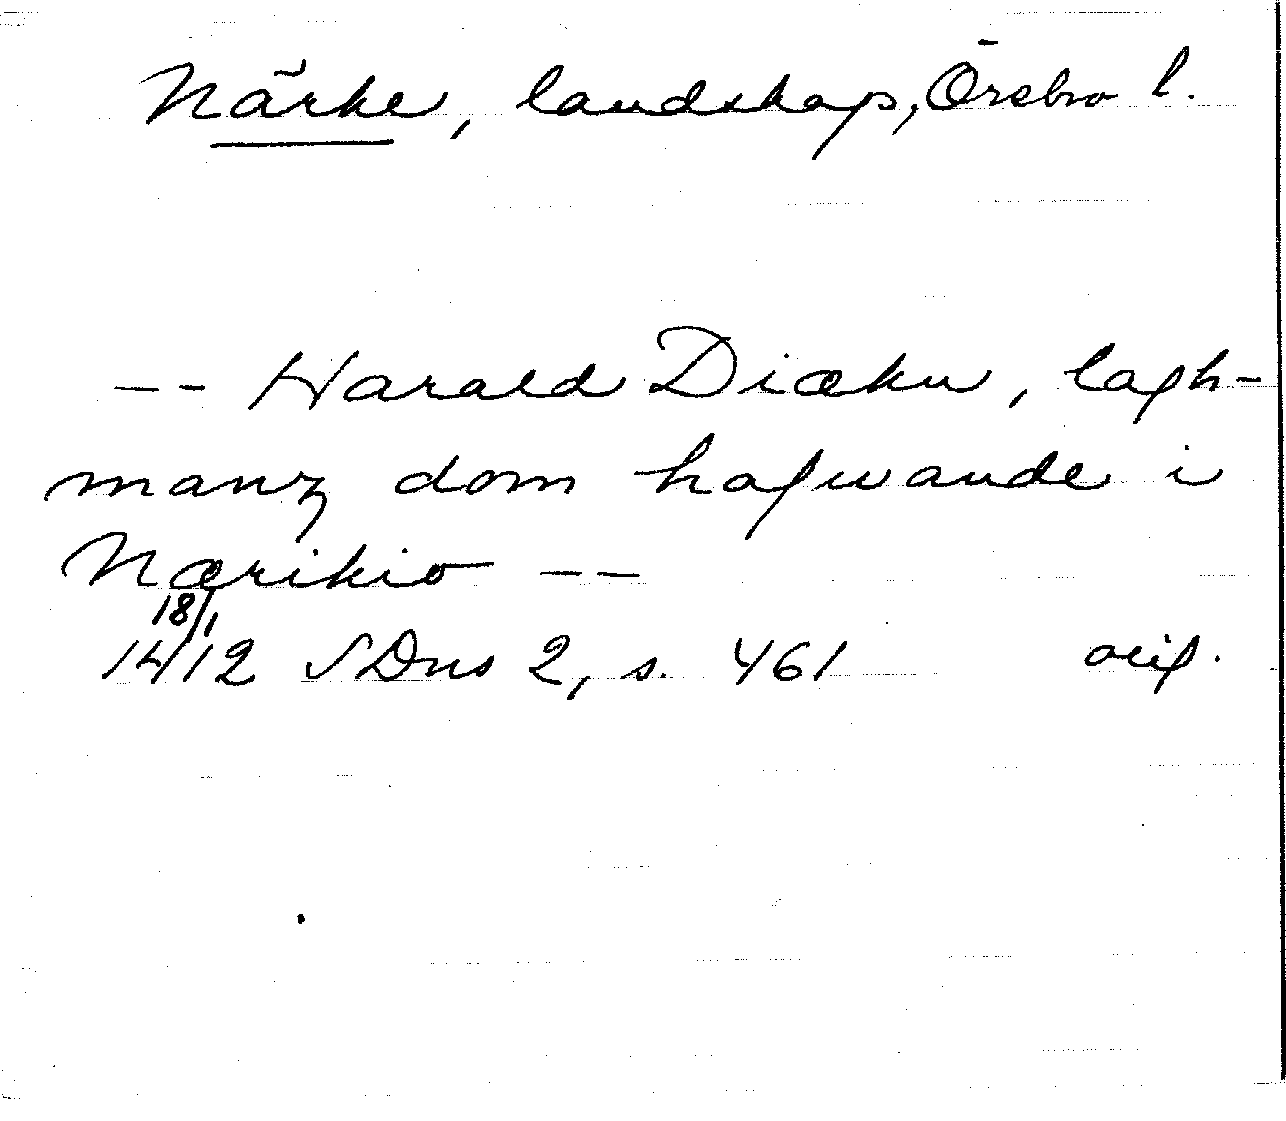 Närke, landskap, Örebro l.
-- Harald Diækn, lagh-
manz dom hafwande i
Nærikio --
18/1
1412 SDns 2, s. 461 orig.